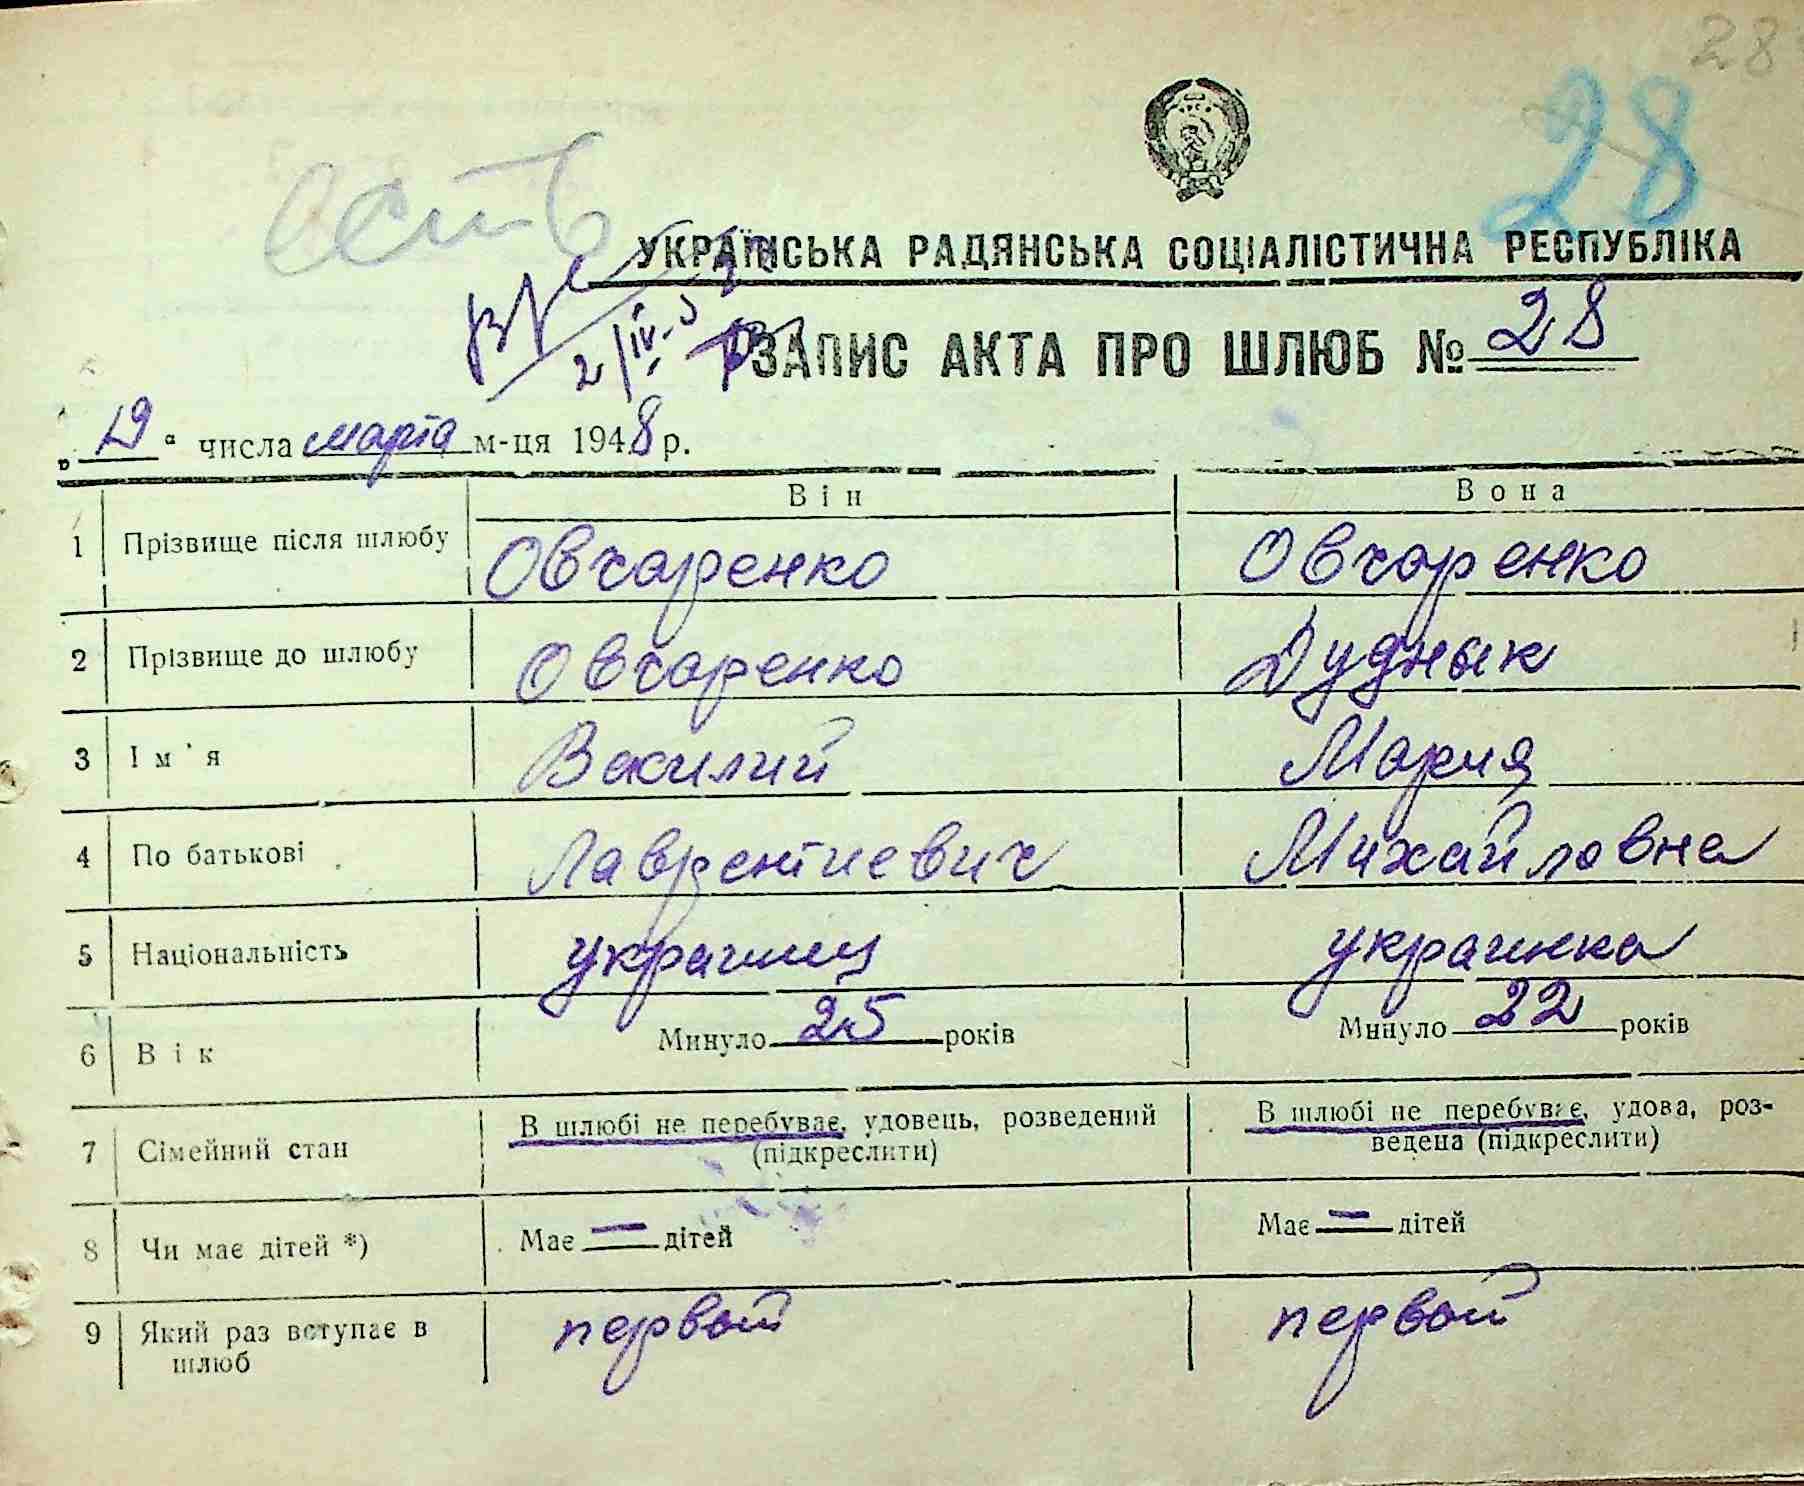 28
28
Есть
УКРАЇНСЬКА РАДЯНСЬКА СОЦІАЛІСТИЧНА РЕСПУБЛІКА
2/IV-
ЗАПИС АКТА ПРО ШЛЮБ № 28
„19“ числа марта м-ця 1948 р.
Він Вона
1 Прізвище після шлюбу Овчаренко Овчаренко
2 Прізвище до шлюбу Овчаренко Дуднык
3 Ім'я Василий Мария
4 По батькові Лаврентиевич Михайловна
5 Національність украинец украинка
6 Вік Минуло 25 років Минуло 22 років
7 Сімейний стан В шлюбі не перебуває, удовець, розведений (підкреслити) В шлюбі не перебуває, удова, роз-
ведена (підкреслити)
8 Чи має дітей *) Має — дітей Має — дітей
9 Який раз вступає в шлюб первый первый